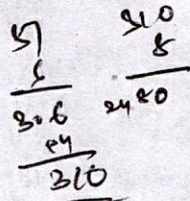 51
6
306
04
310
310
8
2480